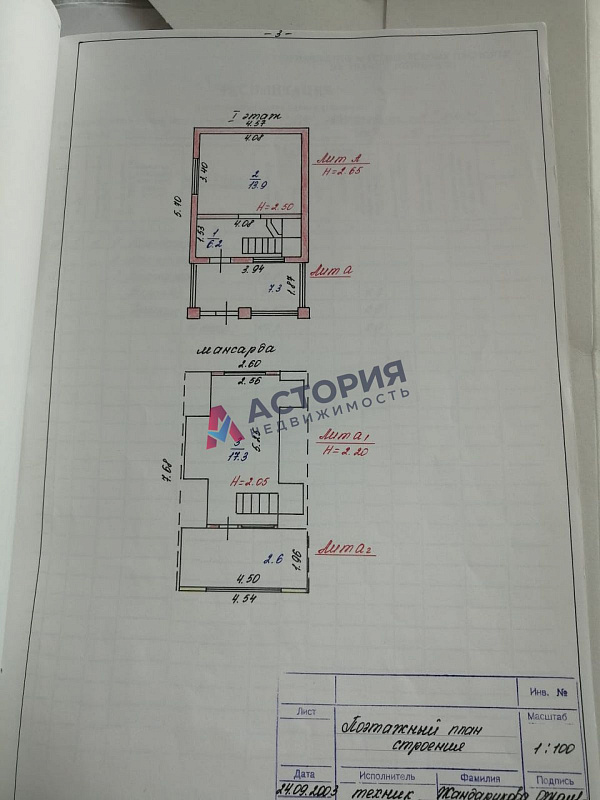 - 3 -
I этаж
4.37
4.08
3.40
2
13.9
H=2.50
Лит А
H=2.65
5.70
4.08
1.53
1
6.2
3.94
7.3
1.87
Лит а
мансарда
2.60
2.56
АСТОРИЯ
НЕДВИЖИМОСТЬ
5.25
3
17.3
Лит а₁
H=2.20
7.68
H=2.05
2.6
1.96
Лит а₂
4.50
4.54
Инв. №
Лист
Масштаб
Поэтажный план
строения
1:100
Дата
Исполнитель
Фамилия
Подпись
24.09.2003
техник